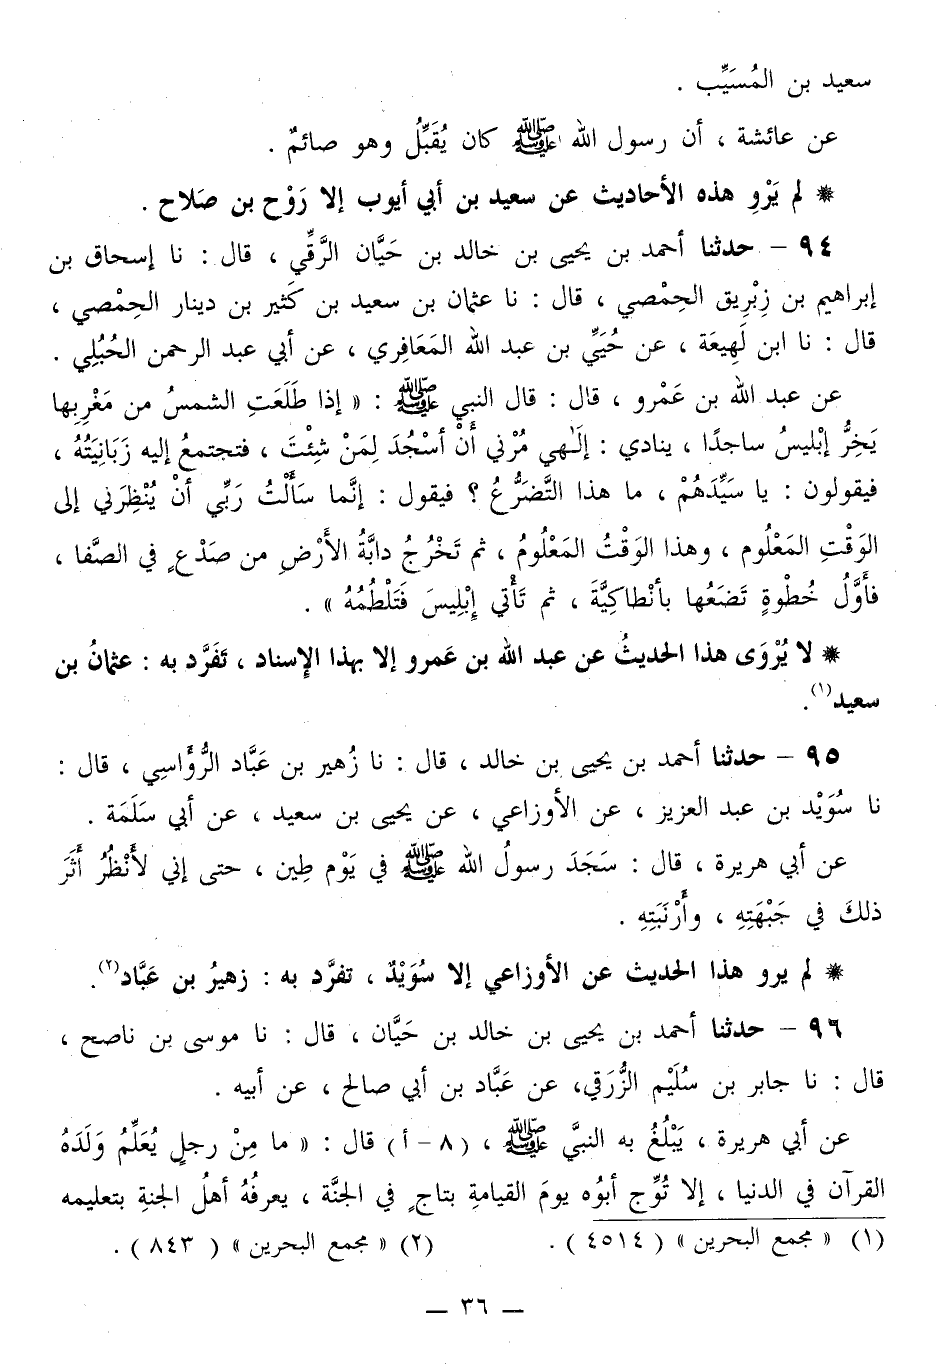 سعيد بن المُسَيِّب .
عن عائشة ، أن رسول الله ﷺ كان يُقَبِّلُ وهو صائمٌ .
* لم يَرْوِ هذه الأحاديث عن سعيد بن أبي أيوب إلا رَوْح بن صَلاح .
٩٤ – حدثنا أحمد بن يحيى بن خالد بن حَيَّان الرَّقِّي ، قال : نا إسحاق بن
إبراهيم بن زِبْرِيق الحِمْصي ، قال : نا عثمان بن سعيد بن كَثير بن دينار الحِمْصي ،
قال : نا ابن لَهِيعَة ، عن حُيَيِّ بن عبد الله المَعَافِري ، عن أبي عبد الرحمن الحُبُلِي .
عن عبد الله بن عَمْرو ، قال : قال النبي ﷺ : « إذا طَلَعَتِ الشمسُ من مَغْرِبِها
يَخِرُّ إبْليسُ ساجدًا ، ينادي : إلَـٰهي مُرْني أَنْ أسْجُدَ لِمَنْ شِئْتَ ، فتجتمعُ إليه زَبَانِيَتُهُ ،
فيقولون : يا سَيِّدَهُمْ ، ما هذا التَّضَرُّعُ ؟ فيقول : إنَّما سَأَلْتُ رَبِّي أنْ يُنْظِرَني إلى
الوَقْتِ المَعْلُوم ، وهذا الوَقْتُ المَعْلُومُ ، ثم تَخْرُجُ دابَّةُ الأَرْضِ من صَدْعٍ في الصَّفا ،
فأَوَّلُ خُطْوةٍ تَضَعُها بأنْطاكِيَّةَ ، ثم تَأْتي إبْلِيسَ فَتَلْطِمُهُ » .
* لا يُرْوَى هذا الحديثُ عن عبد الله بن عَمرو إلا بهذا الإسناد ، تَفَرَّد به : عثمانُ بن
سعيد(١).
٩٥ – حدثنا أحمد بن يحيى بن خالد ، قال : نا زُهير بن عَبَّاد الرُّؤَاسِي ، قال :
نا سُوَيْد بن عبد العزيز ، عن الأوزاعي ، عن يحيى بن سعيد ، عن أبي سَلَمَة .
عن أبي هريرة ، قال : سَجَدَ رسولُ الله ﷺ في يَوْم طِين ، حتى إني لأَنْظُرُ أَثَرَ
ذلكَ في جَبْهَتِهِ ، وأَرْنَبَتِهِ .
* لم يرو هذا الحديث عن الأوزاعي إلا سُوَيْدٌ ، تفرَّد به : زهيرُ بن عَبَّاد(٢).
٩٦ – حدثنا أحمد بن يحيى بن خالد بن حَيَّان ، قال : نا موسى بن ناصح ،
قال : نا جابر بن سُلَيْم الزُّرَقي، عن عَبَّاد بن أبي صالح ، عن أبيه .
عن أبي هريرة ، يَبْلُغُ به النبيَّ ﷺ ، ( ٨ – أ ) قال : « ما مِنْ رجلٍ يُعَلِّمُ وَلَدَهُ
القرآن في الدنيا ، إلا تُوِّج أبوُه يومَ القيامةِ بتاجٍ في الجنَّة ، يعرفُهُ أهلُ الجنةِ بتعليمه
(١) « مجمع البحرين » ( ٤٥١٤ ) . (٢) « مجمع البحرين » ( ٨٤٣ ) .
— ٣٦ —